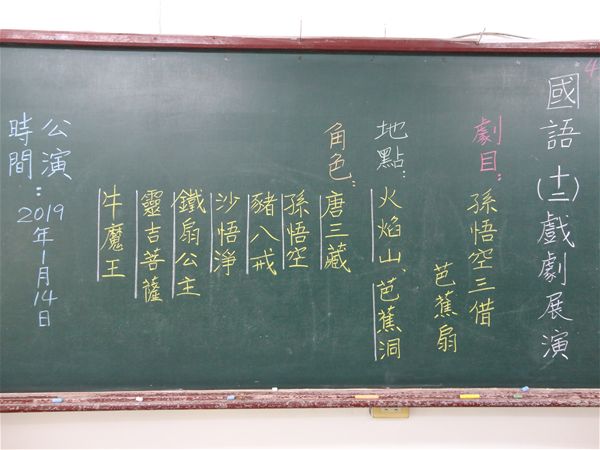 4
國語(十二)戲劇展演
劇目：孫悟空三借
芭蕉扇
地點：火焰山、芭蕉洞
角色：唐三藏
孫悟空
豬八戒
沙悟淨
鐵扇公主
靈吉菩薩
牛魔王
公演
時間：2019年1月14日